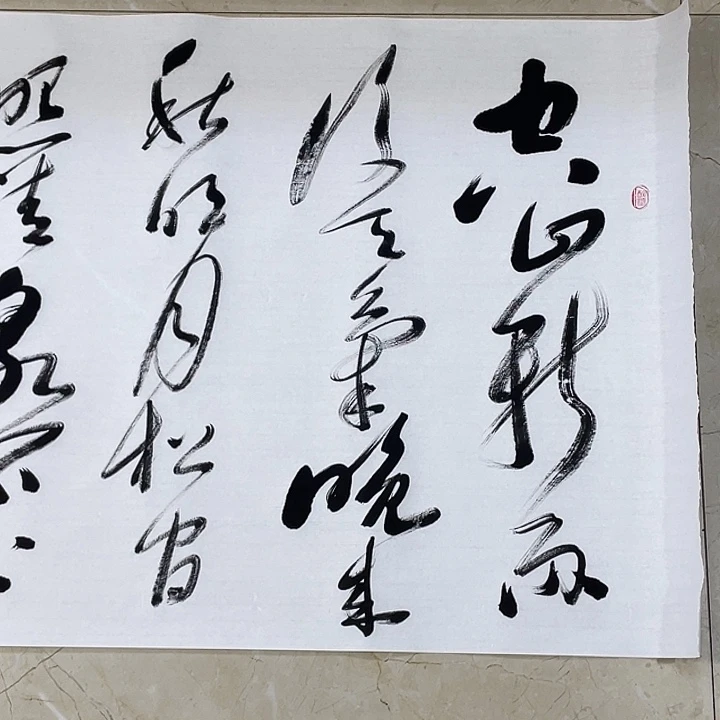 空山新雨
后天气晚来
秋明月松间
照清泉石上